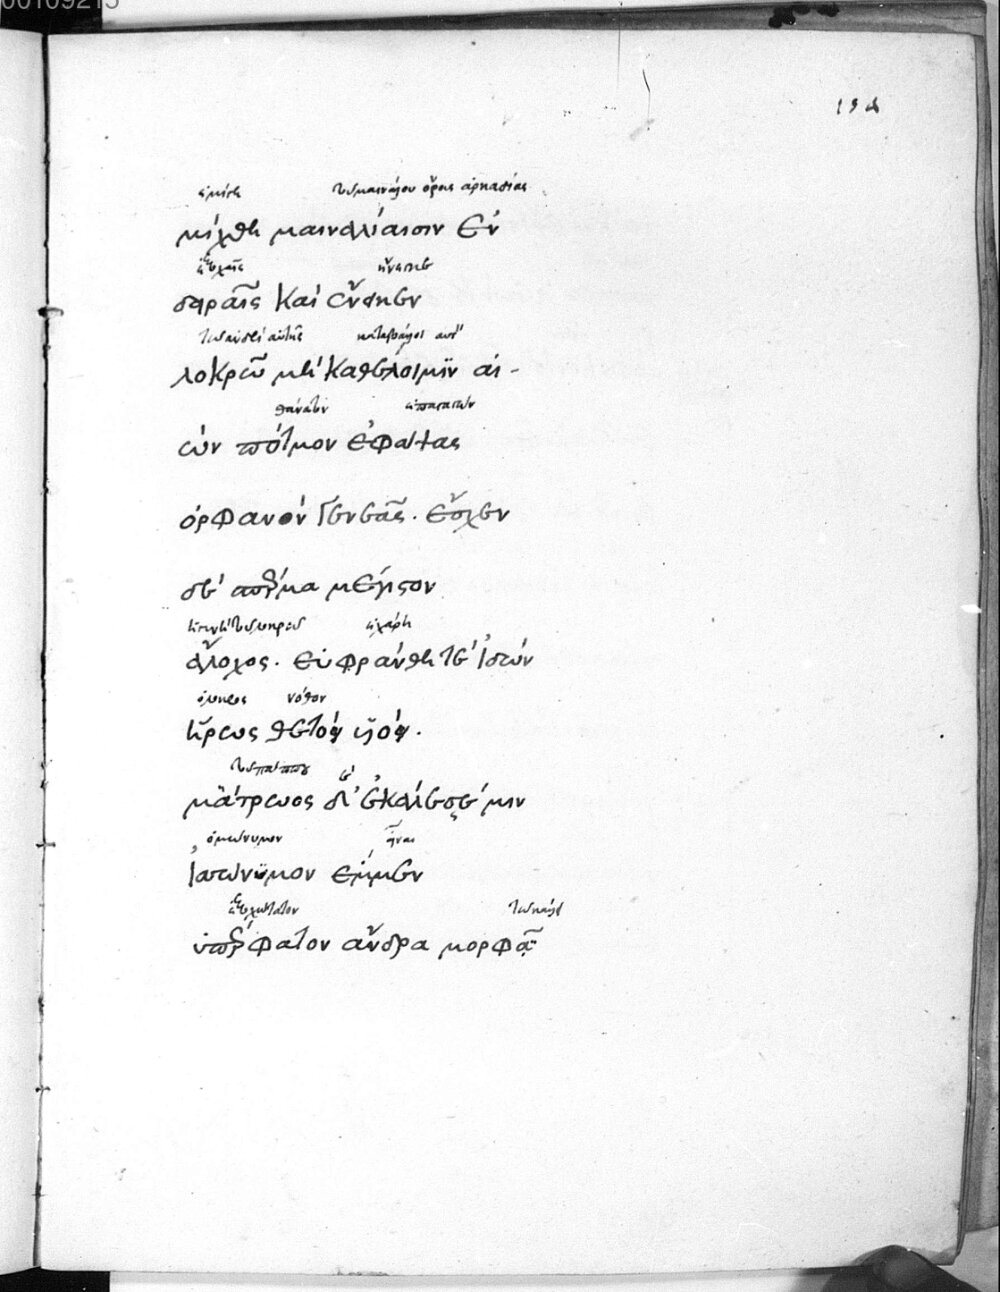 00109215
134
ἐμίγη τοῦ μαινάλου ὄρους ἀρκαδίας
μίχθη μαιναλίαισιν ἐν
εὐχαῖς ἤνεγκε
δειραῖς καὶ ἔνεικεν
λοκρῶ μὴ καθέλοι μιν αἰ-
θάνατον
ὼν πότμον ἐφάψας
ὀρφανὸν γενεᾶς. ἔσχεν
δὲ σπέρμα μέγιστον
ἐχάρη
ἄλοχος. εὐφράνθη τε ἰδὼν
ὁ λοκρὸς νόθον
ἥρως θετὸν υἱόν.
τοῦ πάππου
μάτρωος δ' ἐκάλεσσέ μιν
ὁμώνυμον εἶναι
ἰσώνυμον ἔμμεν
ὑπέρφατον ἄνδρα μορφᾷ